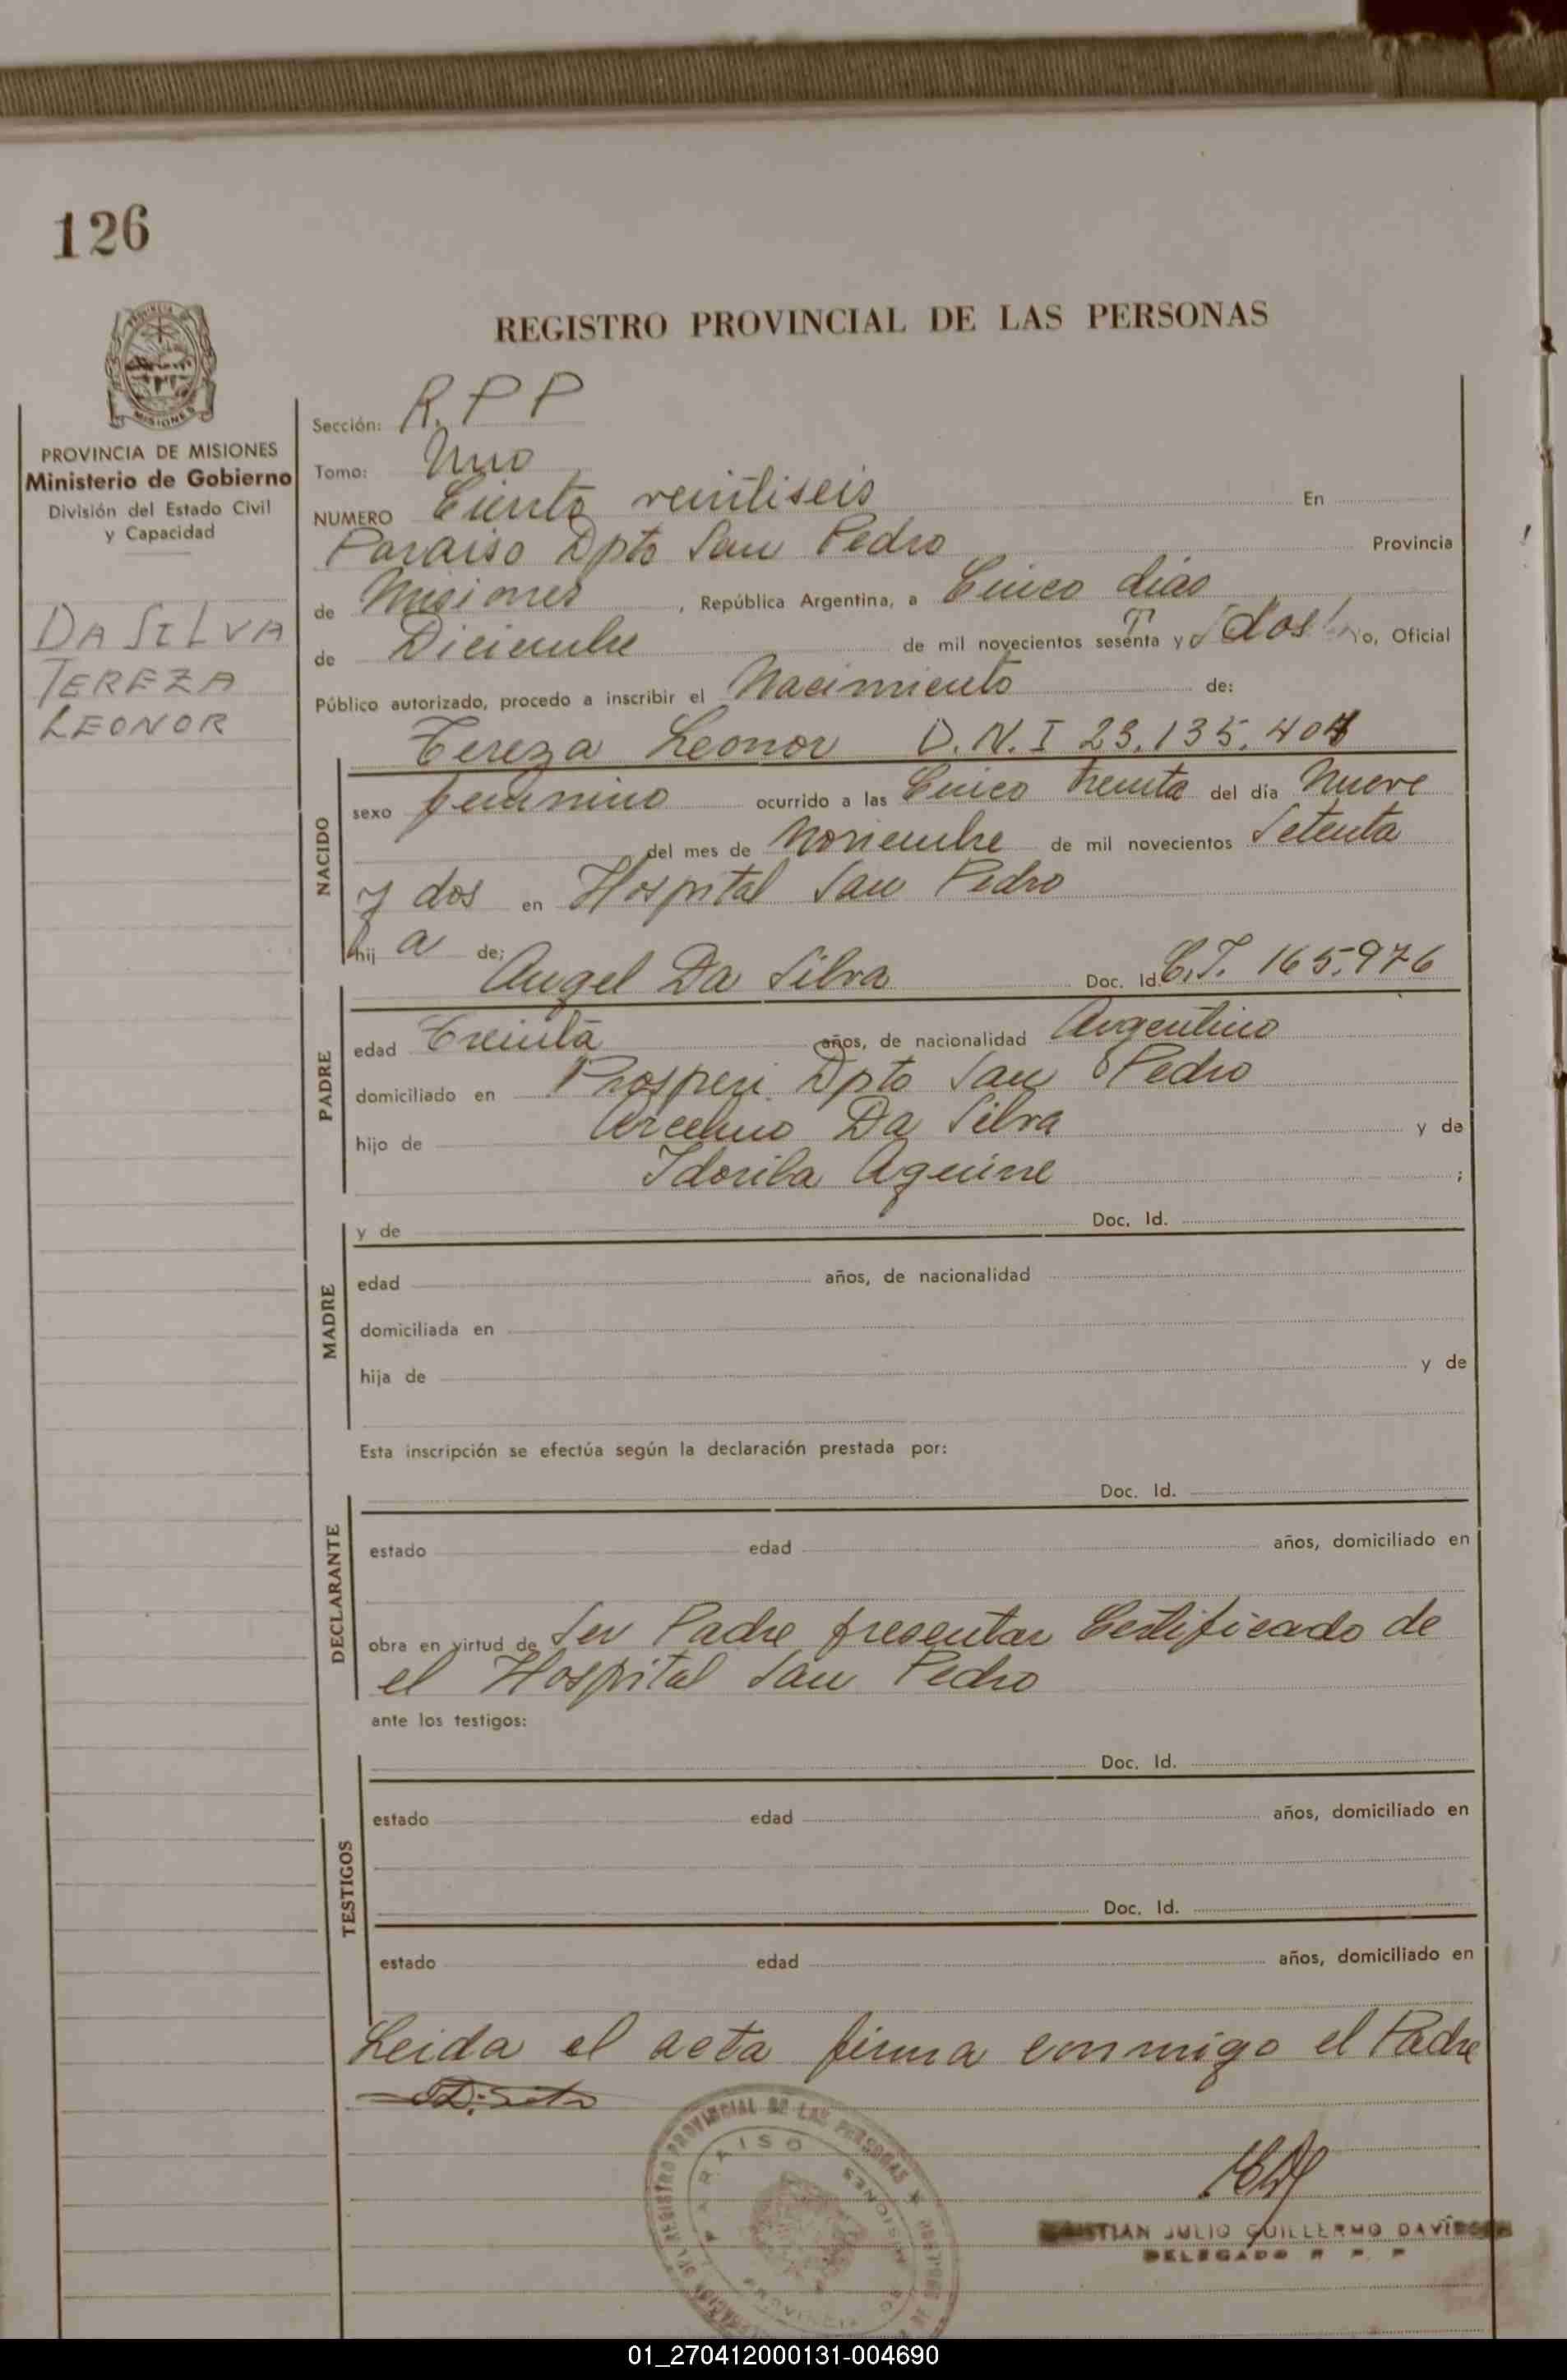 126
REGISTRO PROVINCIAL DE LAS PERSONAS
PROVINCIA DE MISIONES
Ministerio de Gobierno
División del Estado Civil
y Capacidad
DA SILVA
TEREZA
LEONOR
Sección: R.P P
Tomo: Uno
NUMERO Ciento veintiseis En
Paraiso Dpto San Pedro Provincia
de Misiones, República Argentina, a Cinco dias
de Diciembre de mil novecientos sesenta y dos yo, Oficial
Público autorizado, procedo a inscribir el Nacimiento de:
Tereza Leonor D.N.I 23.135.404
NACIDO
sexo femenino ocurrido a las Cinco treinta del día Nueve
del mes de Noviembre de mil novecientos Setenta
y dos en Hospital San Pedro
hij a de; Angel Da Silva Doc. Id. C.I. 165.976
PADRE
edad Treinta años, de nacionalidad Argentino
domiciliado en Prosperi Dpto San Pedro
hijo de Da Silva y de
Aguirre ;
MADRE
y de Doc. Id.
edad años, de nacionalidad
domiciliada en
hija de y de
Esta inscripción se efectúa según la declaración prestada por:
DECLARANTE
Doc. Id.
estado edad años, domiciliado en
obra en virtud de Ser Padre presentar Certificado de
el Hospital San Pedro
ante los testigos:
TESTIGOS
Doc. Id.
estado edad años, domiciliado en
Doc. Id.
estado edad años, domiciliado en
Leida el acta firma conmigo el Padre
REGISTRO PROVINCIAL DE LAS PERSONAS
PARAISO
MISIONES
JULIO GUILLERMO
DELEGADO R P P
01_270412000131-004690